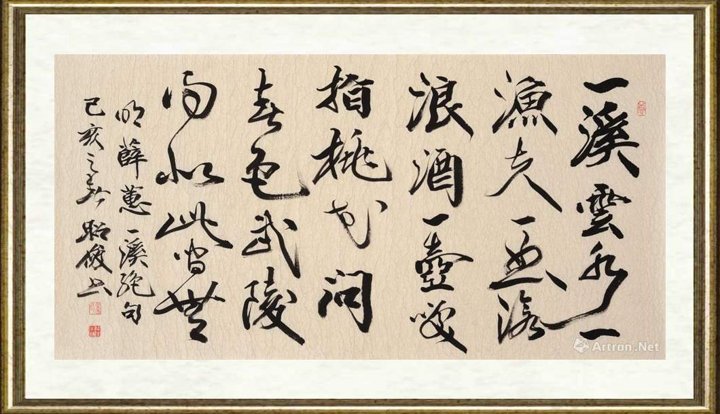 一溪雲水一
漁夫一點滄
浪酒一壺笑
指桃花問
春色武陵
似此間無
明薛蕙一溪絕句
己亥之 昭俊書
Artron.Net